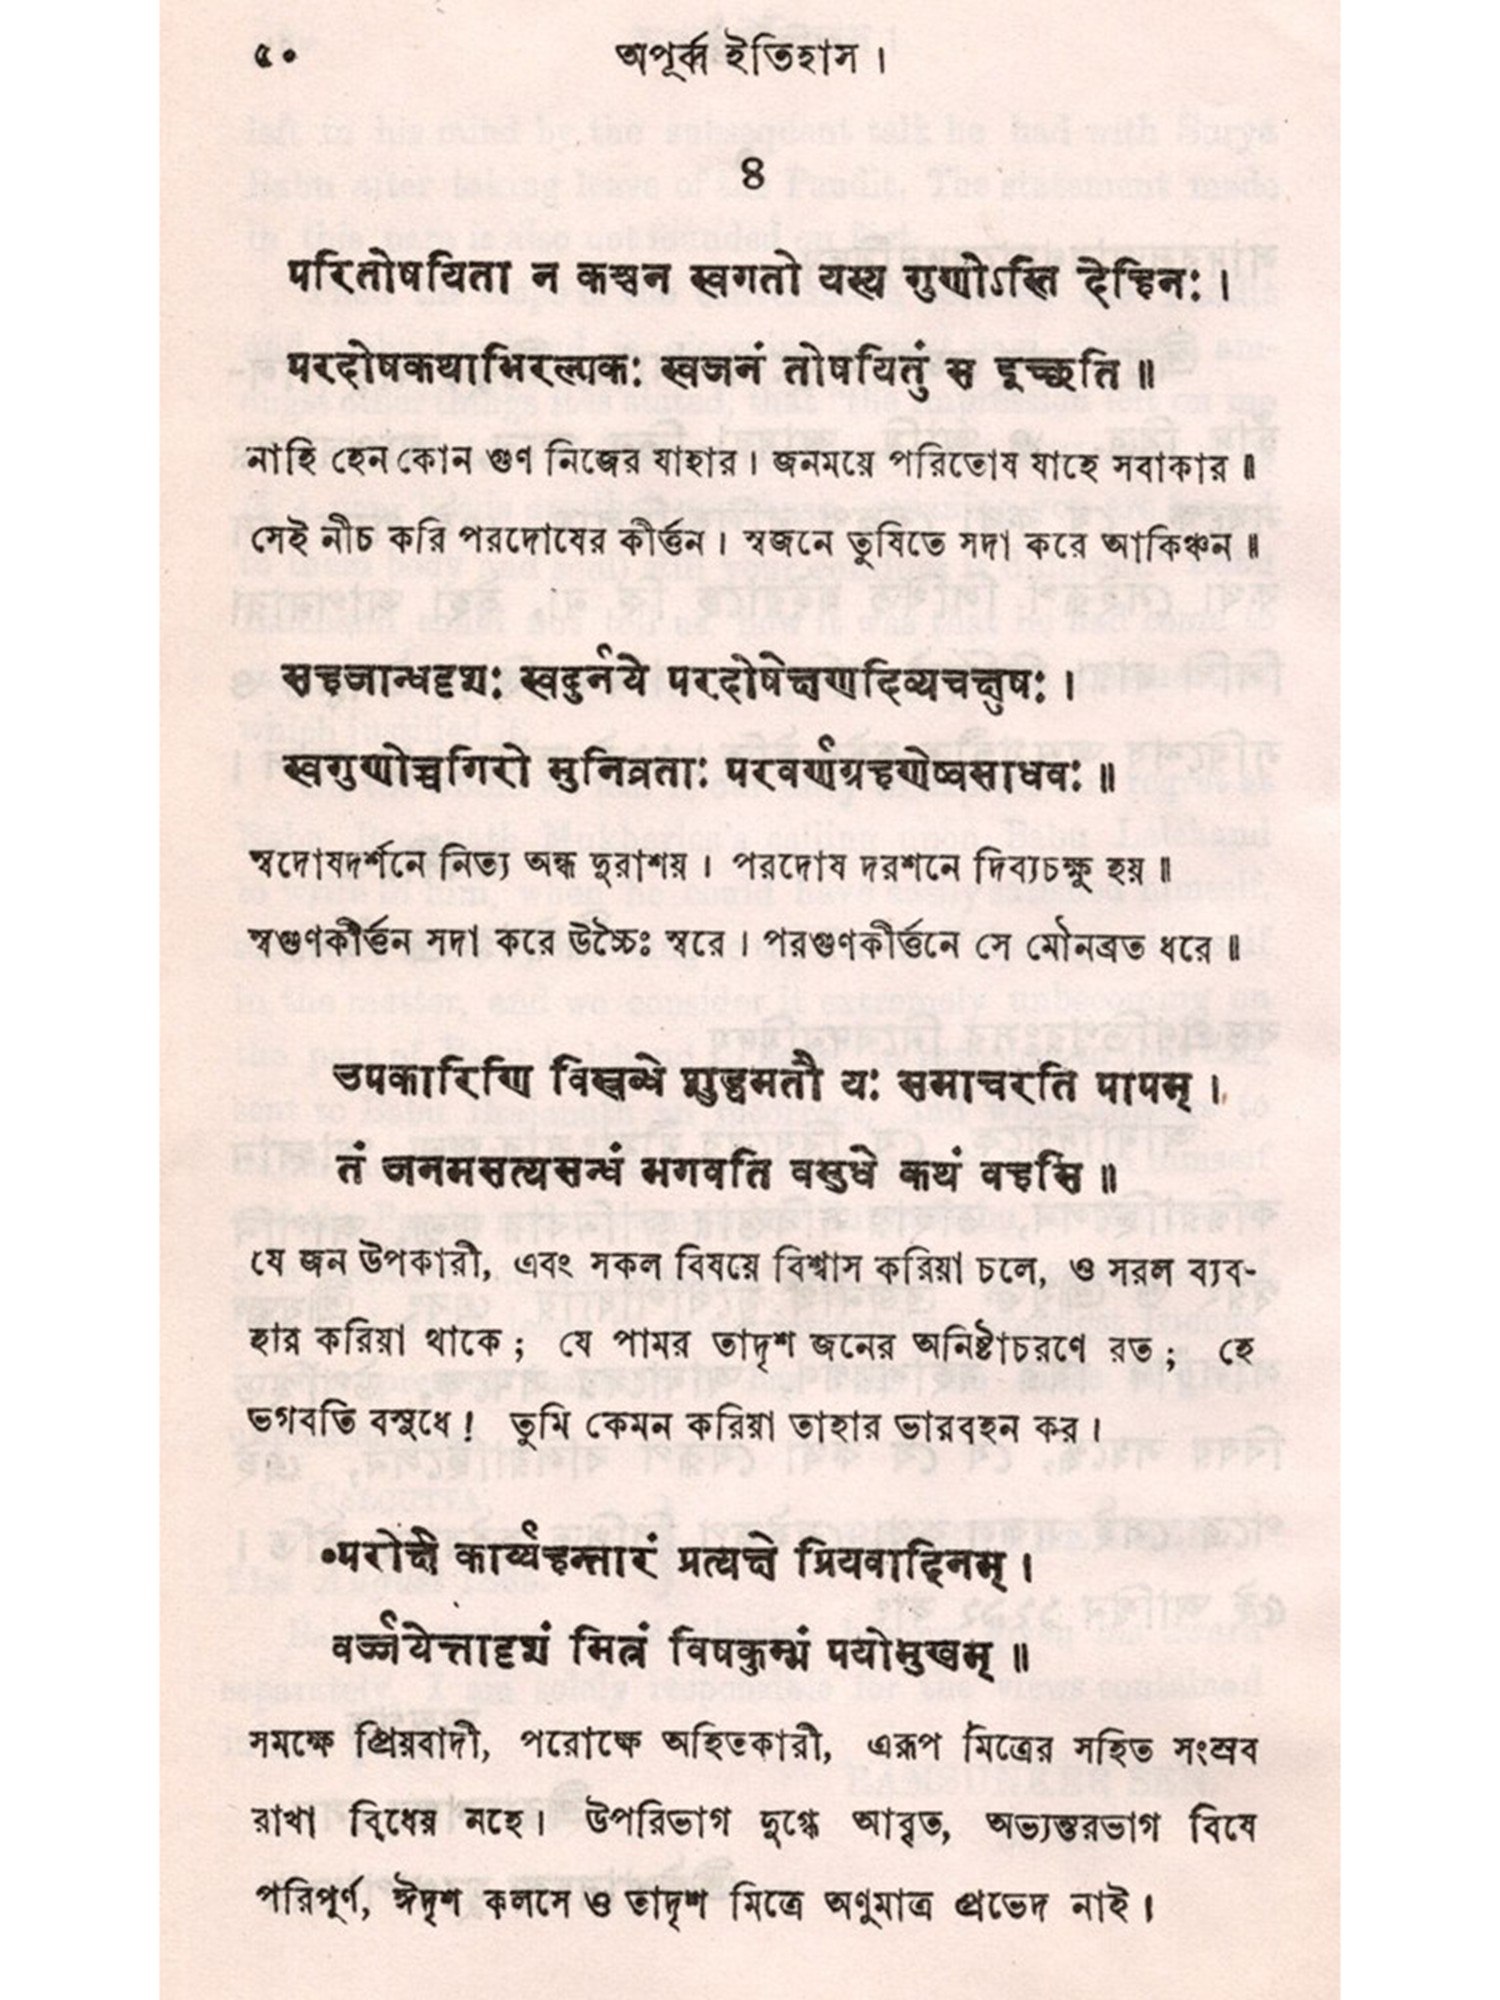 ৫০
অপূর্ব্ব ইতিহাস।
৪
परितोषयिता न कश्चन स्वगतो यस्य गुणोऽस्ति देहिनः।
परदोषकथाभिरल्पकः स्वजनं तोषयितुं स इच्छति॥
নাহি হেন কোন গুণ নিজের যাহার। জনময়ে পরিতোষ যাহে সবাকার॥
সেই নীচ করি পরদোষের কীর্ত্তন। স্বজনে তুষিতে সদা করে আকিঞ্চন॥
सहजान्धदृशः स्वदुर्नये परदोषेक्षणदिव्यचक्षुषः।
स्वगुणोच्चगिरो मुनिव्रताः परवर्णग्रहणेष्वसाधवः॥
স্বদোষদর্শনে নিত্য অন্ধ দুরাশয়। পরদোষ দরশনে দিব্যচক্ষু হয়॥
স্বগুণকীর্ত্তন সদা করে উচ্চৈঃ স্বরে। পরগুণকীর্ত্তনে সে মৌনব্রত ধরে॥
उपकारिणि विस्रब्धे शुद्धमतौ यः समाचरति पापम्।
तं जनमसत्यसन्धं भगवति वसुधे कथं वहसि॥
যে জন উপকারী, এবং সকল বিষয়ে বিশ্বাস করিয়া চলে, ও সরল ব্যব-
হার করিয়া থাকে; যে পামর তাদৃশ জনের অনিষ্টাচরণে রত; হে
ভগবতি বসুধে! তুমি কেমন করিয়া তাহার ভারবহন কর।
परोक्षे कार्य्यहन्तारं प्रत्यक्षे प्रियवादिनम्।
वर्ज्जयेत्तादृशं मित्रं विषकुम्भं पयोमुखम्॥
সমক্ষে প্রিয়বাদী, পরোক্ষে অহিতকারী, এরূপ মিত্রের সহিত সংস্রব
রাখা বিধেয় নহে। উপরিভাগ দুগ্ধে আবৃত, অভ্যন্তরভাগ বিষে
পরিপূর্ণ, ঈদৃশ কলসে ও তাদৃশ মিত্রে অণুমাত্র প্রভেদ নাই।